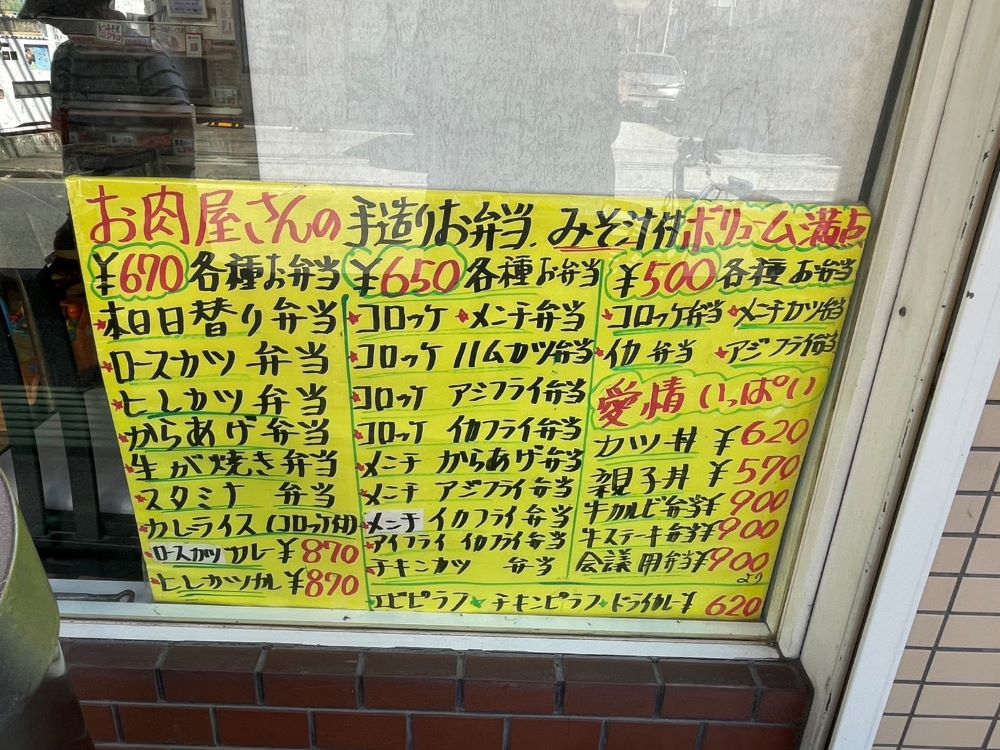 お肉屋さんの手造りお弁当、みそ汁付ボリューム満点
¥670各種お弁当
本日日替り弁当
ロースカツ弁当
ヒレカツ弁当
からあげ弁当
生が焼き弁当
スタミナ 弁当
カレーライス(コロッケ付)
ロースカツカレー¥870
ヒレカツカレ¥870
¥650各種お弁当
コロッケ・メンチ弁当
コロッケ ハムカツ弁当
コロッケ アジフライ弁当
コロッケ イカフライ弁当
メンチ からあげ弁当
メンチ アジフライ弁当
メンチ イカフライ弁当
アイフライ イカフライ弁当
チキンカツ 弁当
エビピラフ・チキンピラフ・ドライカレ¥620
¥500各種お弁当
コロッケ弁当・メンチカツ弁当
イカ弁当・アジフライ弁当
愛情いっぱい
カツ丼¥620
親子丼¥570
牛カルビ弁当¥900
牛ステーキ弁当¥900
会議用弁当¥900
より